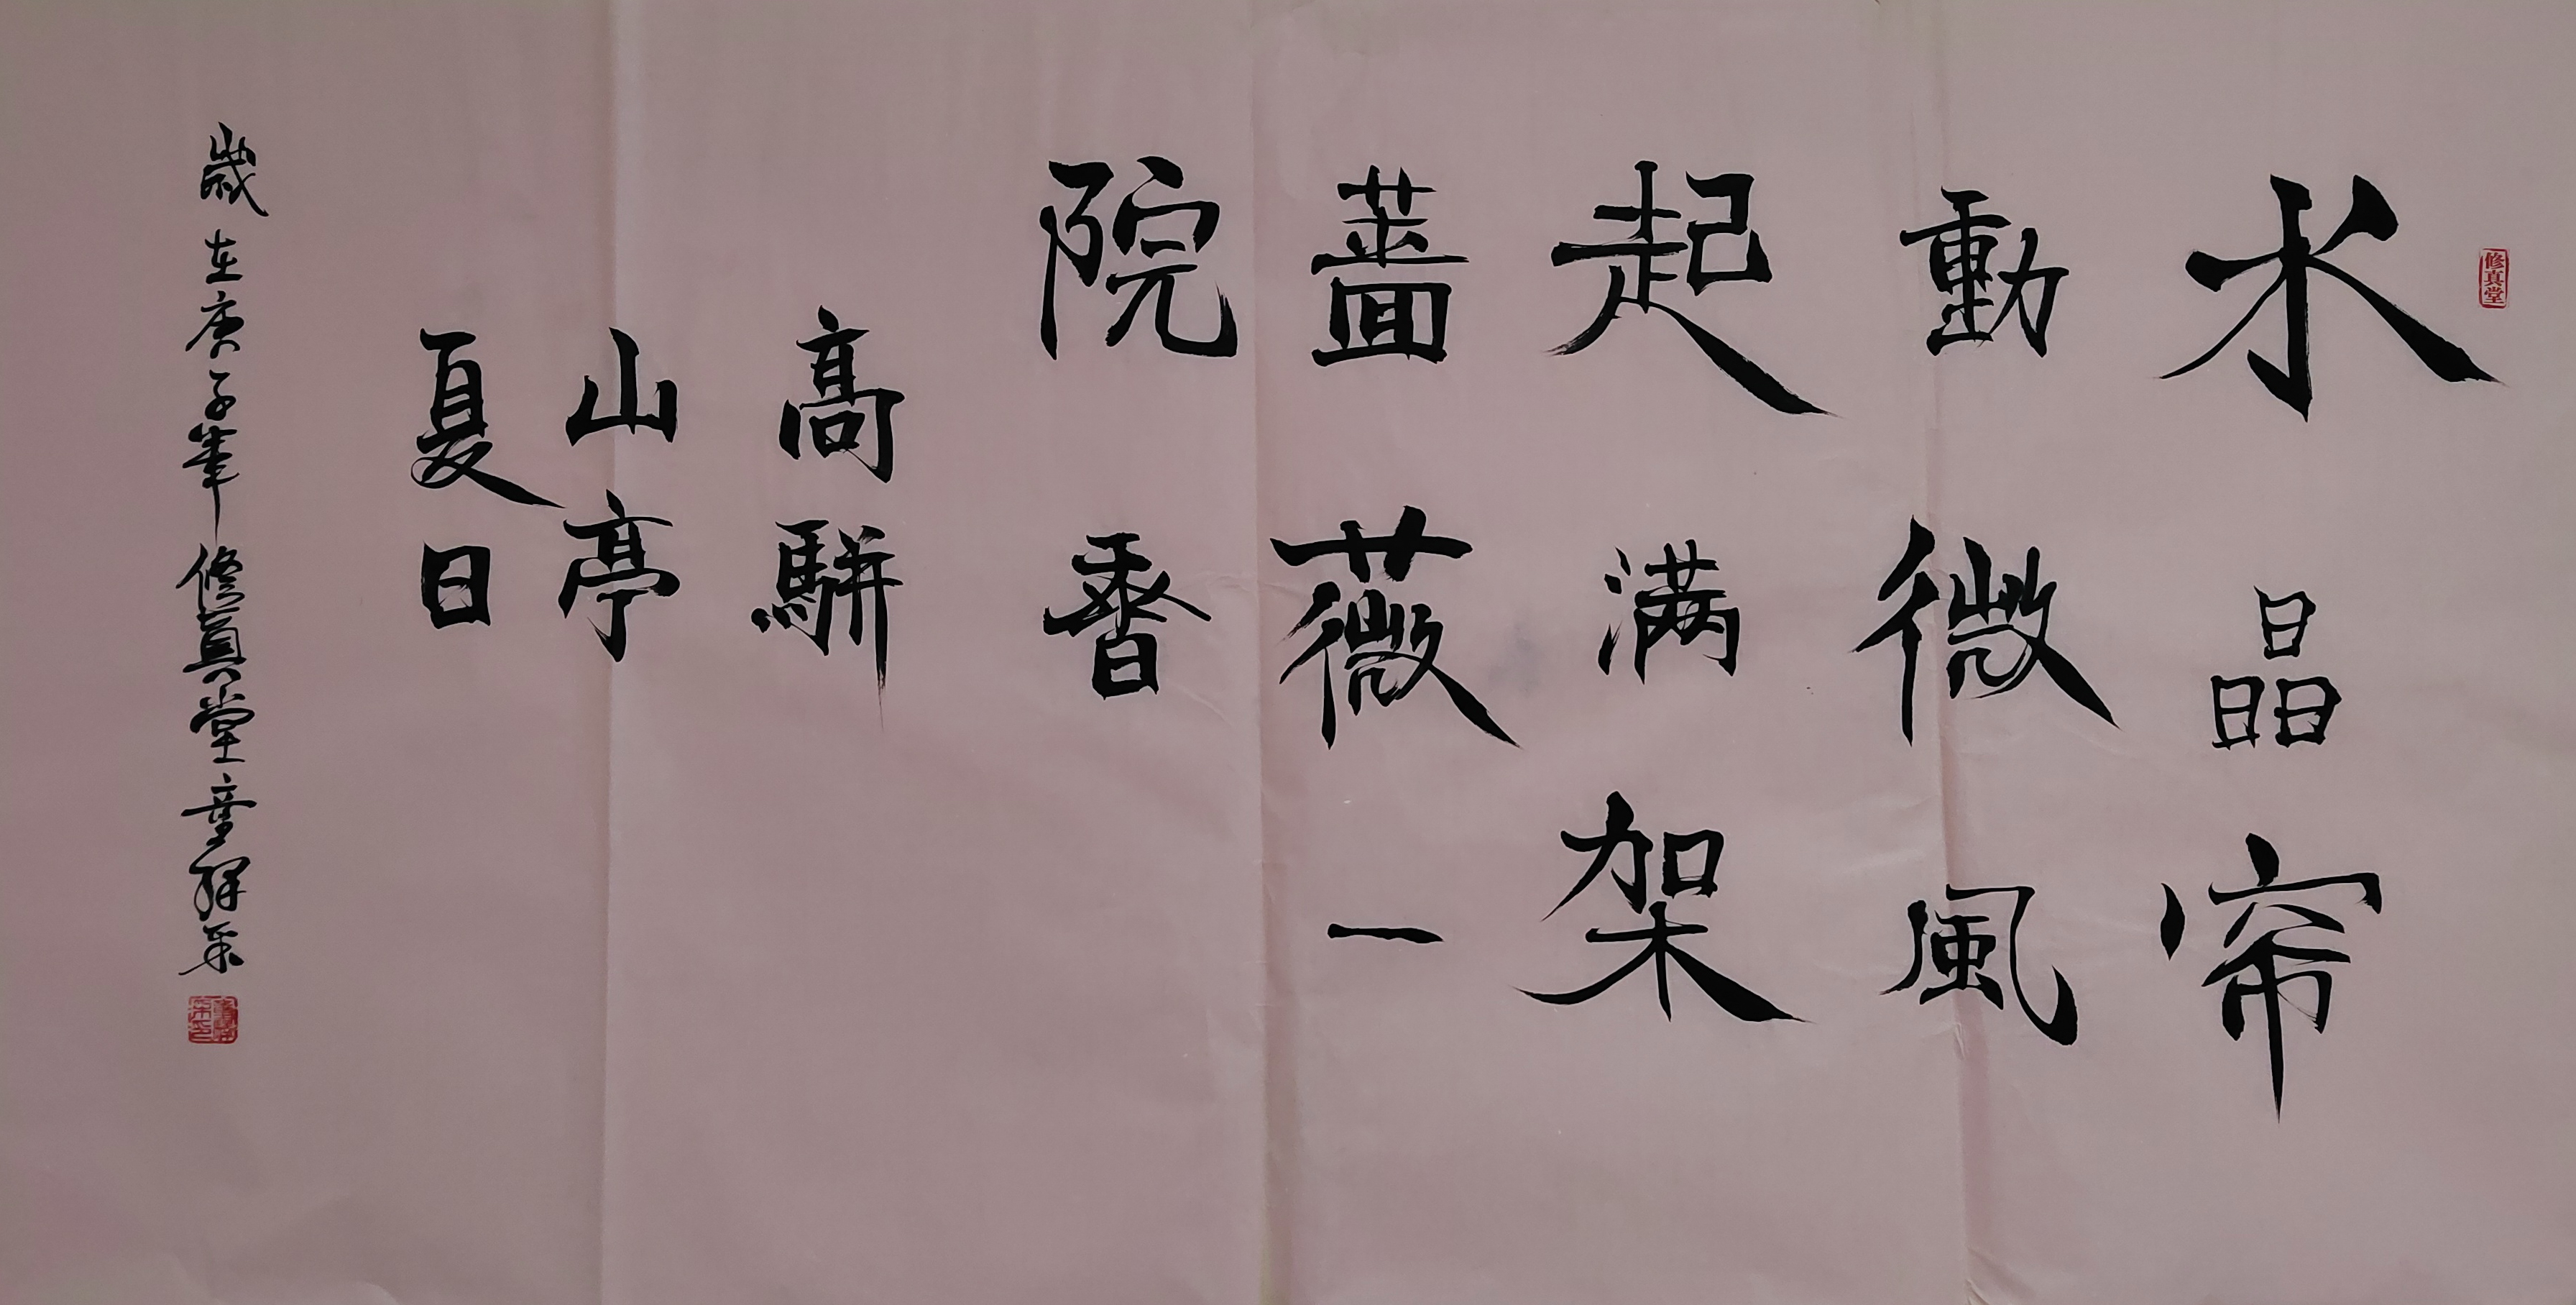 修真堂
水晶帘
動微風
起满架
薔薇一
院香
高駢
山亭
夏日
歲在庚子年修真堂童